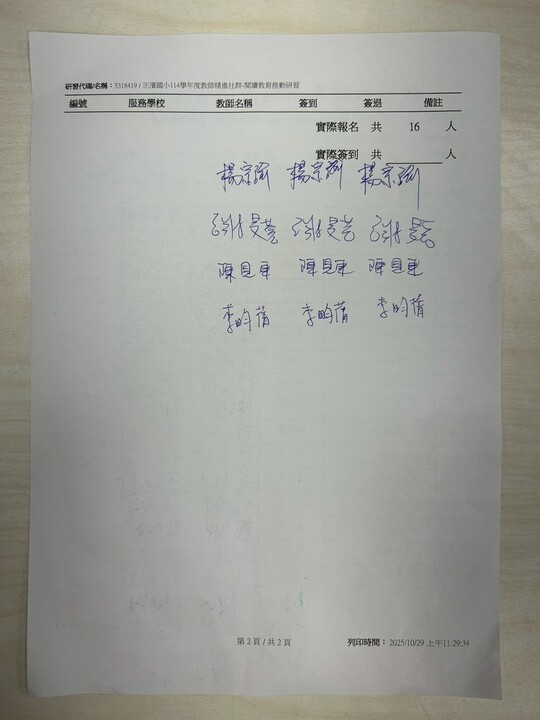 研習代碼/名稱：5318419 / 正濱國小114學年度教師精進社群-閱讀教育推動研習
編號 服務學校 教師名稱 簽到 簽退 備註
實際報名 共 16 人
實際簽到 共 人
楊宗 楊宗 楊宗
謝旻 謝旻 謝旻
陳見東 陳見東 陳見東
李昀蒨 李昀蒨 李昀蒨
第 2 頁 / 共 2 頁 列印時間：2025/10/29 上午11:29:34